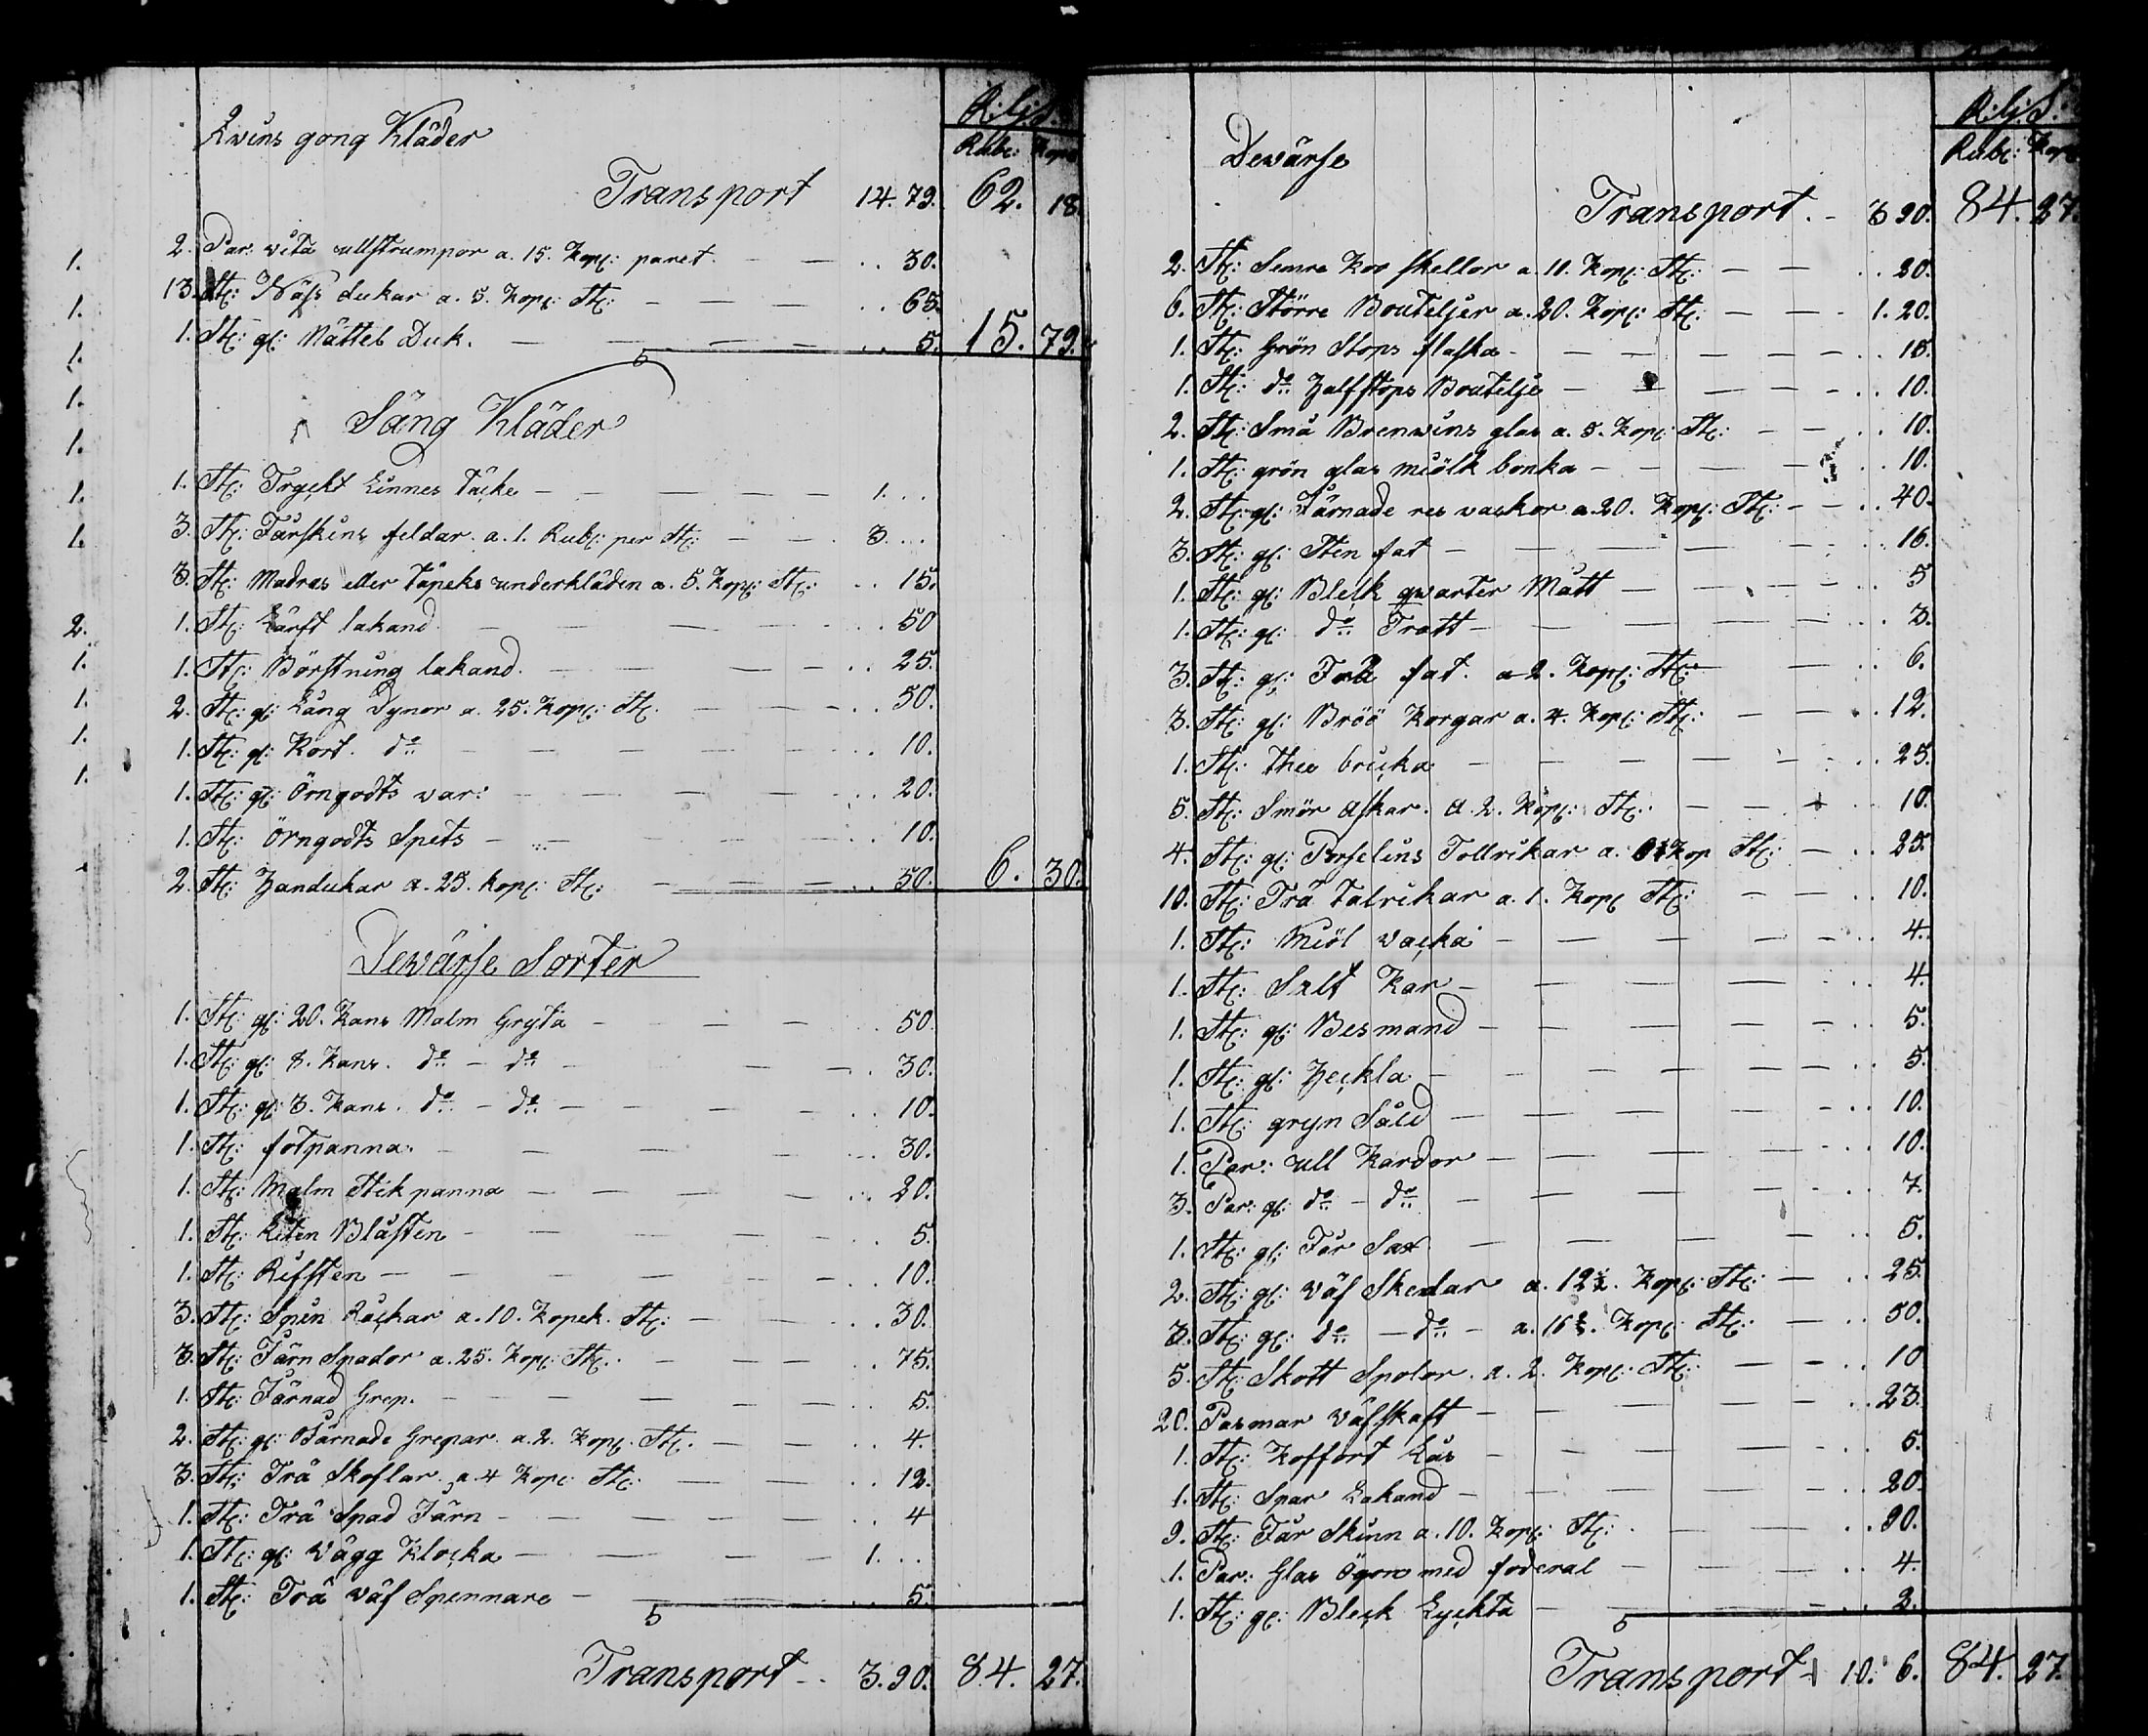 R:G:S:
Qvins gong Kläder
Rubl: Kop:
Transport 14. 79. 62. 18.
2. Par. vita ullstrumpor a. 15. Kop: paret. 30.
13. St: Näss dukar a. 5. Kop: St: 65.
1. St: gl: Nättel Duk. 5. 15. 79.
Säng Kläder
1. St: Tryckt Linnes täcke 1. . .
3. St: Fårskins feldar. a. 1. Rubl: per St: 3. . .
3. St: Madras eller täpeks underkläden a. 5. Kop: St: 15.
1. St: Lärft lakand. 50
1. St: Börstning lakand. 25.
2. St: gl: Lång Dynor a. 25. Kop: St: 50.
1. St: gl: Kort. do 10.
1. St: gl: Örngodts var: 20.
1. St: Örngodts Spets 10.
2. St: Handukar a. 25. kop: St: 50. 6. 30.
Dewärse Sorter
1. St: gl: 20. Kans Malm Gryta 50
1. St: gl: 8. Kans. do - do 30.
1. St: gl: 3. Kans. do - do 10.
1. St: fotpanna. 30.
1. St: Malm Stik panna 20.
1. St: liten Blåsten 5.
1. St: Rifsten 10.
3. St: Spin Råckar a. 10. Kopek. St: 30.
3. St: Järn Spador a. 25. Kop: St: 75.
1. St: Järnad Grep. 5.
2. St: gl: Ojärnade Grepar. a. 2. Kop: St: 4.
3. St: Trä Skoflar. a 4 Kop: St: 12.
1. St: Trä Spad Järn 4
1. St: gl: Vägg Klocka 1. . .
1. St: Trä väf Spennare 5.
Transport 3. 90. 84. 27.
R:G:S:
Dewärse
Rubl: Kop:
Transport. 3 90. 84. 27.
2. St: Semre Kor skellor a. 10. Kop: St: 20.
6. St: Större Bouteljer a. 20. Kop: St: 1. 20.
1. St: Grön Stops flaska 15.
1. St: do Halfstops Boutelje 10.
2. St: Små Brenwins glas a. 5. Kop: St: 10.
1. St: grön glas miölk bonka 10.
2. St: gl: Järnade res vaskor a 20. Kop: St: 40.
3. St: gl: Sten fat 16.
1. St: gl: Bleck qwarter Mått 5
1. St: gl: do Tratt 3.
3. St: gl: Trä fat. a 2. Kop: St: 6.
3. St: gl: Bröö Korgar a. 4. Kop: St: 12.
1. St: thee bricka 25.
5. St: Smör askar. a. 2. Kop: St: 10.
4. St: gl: Porselins Tollrikar a. Kop St: 25.
10. St: Trä talrikar a. 1. Kop: St: 10.
1. St: Miöl vacka 4.
1. St: Salt Kar 4.
1. St: gl: Besmand 5.
1. St: gl: Heckla 5.
1. St: gryn Såld 10.
1. Par: ull Kardor 10.
3. Par: gl: do - do 7.
1. St: gl: Får Sax 5.
2. St: gl: väf Skedar a. 12½. Kop: St: 25.
3. St: gl: do - do - a. 16⅔. Kop: St: 50.
5. St: Skott Spolar. a. 2. Kop: St: 10
20. Pasmar väfskaft 23.
1. St: Koffort Lås 5.
1. St: Spar Lakand 20.
9. St: Får Skinn a. 10. Kop: St: 90.
1. Par: Glas Ögon med foderal 4.
1. St: gl: Bleck Lyckta 2.
Transport 10. 6. 84. 27.
1.
1.
1.
1.
1.
1.
1.
2.
1.
1.
1.
1.